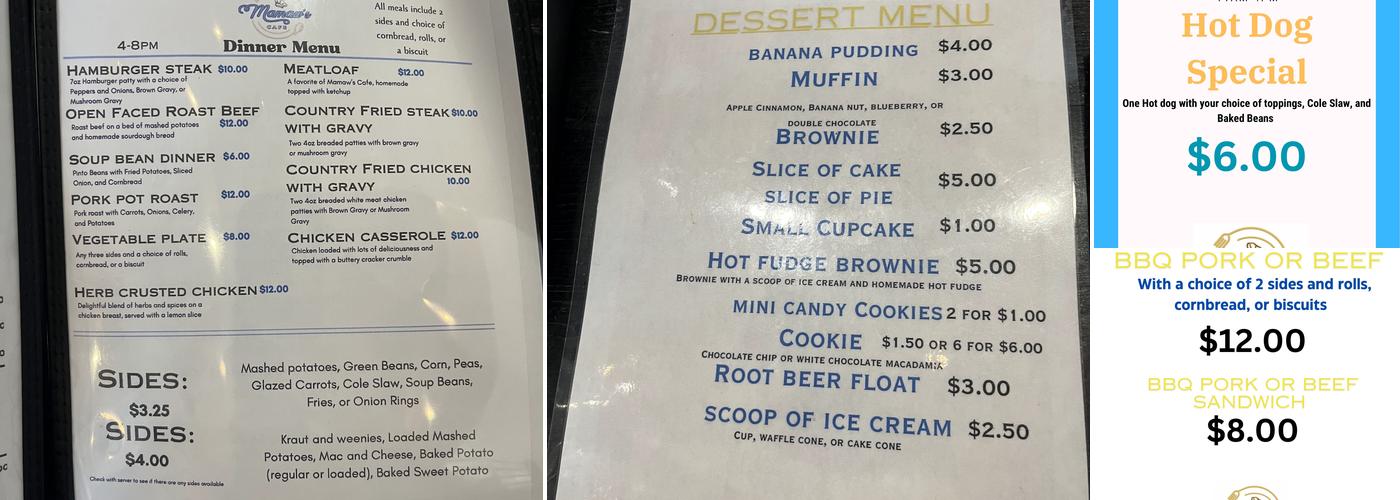 Mamaw's
CAFE
All meals include 2
sides and choice of
cornbread, rolls, or
a biscuit
4-8PM
Dinner Menu
HAMBURGER STEAK $10.00
7oz Hamburger patty with a choice of
Peppers and Onions, Brown Gravy, or
Mushroom Gravy
OPEN FACED ROAST BEEF
$12.00
Roast beef on a bed of mashed potatoes
and homemade sourdough bread
SOUP BEAN DINNER $6.00
Pinto Beans with Fried Potatoes, Sliced
Onion, and Cornbread
PORK POT ROAST $12.00
Pork roast with Carrots, Onions, Celery,
and Potatoes
VEGETABLE PLATE $8.00
Any three sides and a choice of rolls,
cornbread, or a biscuit
HERB CRUSTED CHICKEN $12.00
Delightful blend of herbs and spices on a
chicken breast, served with a lemon slice
MEATLOAF $12.00
A favorite of Mamaw's Cafe, homemade
topped with ketchup
COUNTRY FRIED STEAK $10.00
WITH GRAVY
Two 4oz breaded patties with brown gravy
or mushroom gravy
COUNTRY FRIED CHICKEN
WITH GRAVY 10.00
Two 4oz breaded white meat chicken
patties with Brown Gravy or Mushroom
Gravy
CHICKEN CASSEROLE $12.00
Chicken loaded with lots of deliciousness and
topped with a buttery cracker crumble
SIDES:
$3.25
Mashed potatoes, Green Beans, Corn, Peas,
Glazed Carrots, Cole Slaw, Soup Beans,
Fries, or Onion Rings
SIDES:
$4.00
Kraut and weenies, Loaded Mashed
Potatoes, Mac and Cheese, Baked Potato
(regular or loaded), Baked Sweet Potato
Check with server to see if there are any sides available
DESSERT MENU
BANANA PUDDING $4.00
MUFFIN $3.00
APPLE CINNAMON, BANANA NUT, BLUEBERRY, OR
DOUBLE CHOCOLATE
BROWNIE $2.50
SLICE OF CAKE
SLICE OF PIE
$5.00
SMALL CUPCAKE $1.00
HOT FUDGE BROWNIE $5.00
BROWNIE WITH A SCOOP OF ICE CREAM AND HOMEMADE HOT FUDGE
MINI CANDY COOKIES 2 FOR $1.00
COOKIE $1.50 OR 6 FOR $6.00
CHOCOLATE CHIP OR WHITE CHOCOLATE MACADAMIA
ROOT BEER FLOAT $3.00
SCOOP OF ICE CREAM $2.50
CUP, WAFFLE CONE, OR CAKE CONE
Hot Dog
Special
One Hot dog with your choice of toppings, Cole Slaw, and
Baked Beans
$6.00
BBQ PORK OR BEEF
With a choice of 2 sides and rolls,
cornbread, or biscuits
$12.00
BBQ PORK OR BEEF
SANDWICH
$8.00